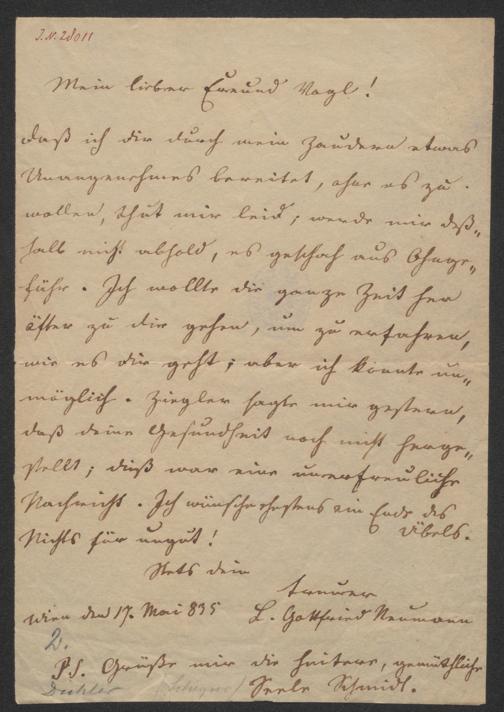 I.N. 28011
Mein lieber Freund Vogl!
Daß ich dir durch mein Zaudern etwas
Unangenehmes bereitet, ohne es zu
wollen, thut mir leid; werde mir deß„
halb nicht abhold, es geschah aus Ohnge„
fähr. Ich wollte die ganze Zeit her
öfter zu dir gehen, um zu erfahren,
wie es dir geht; aber ich konnte un„
möglich. Ziegler sagte mir gestern,
daß deine Gesundheit noch nicht herge„
stellt; dieß war eine unerfreuliche
Nachricht. Ich wünsche ehestens ein Ende des
Übels.
Nichts für ungut!
Stets dein
treuer
Wien den 17. Mai 835 L. Gottfried Neumann
2.
P.S. Grüße mir die heitere, gemüthliche
Seele Schmidt.
Dichter